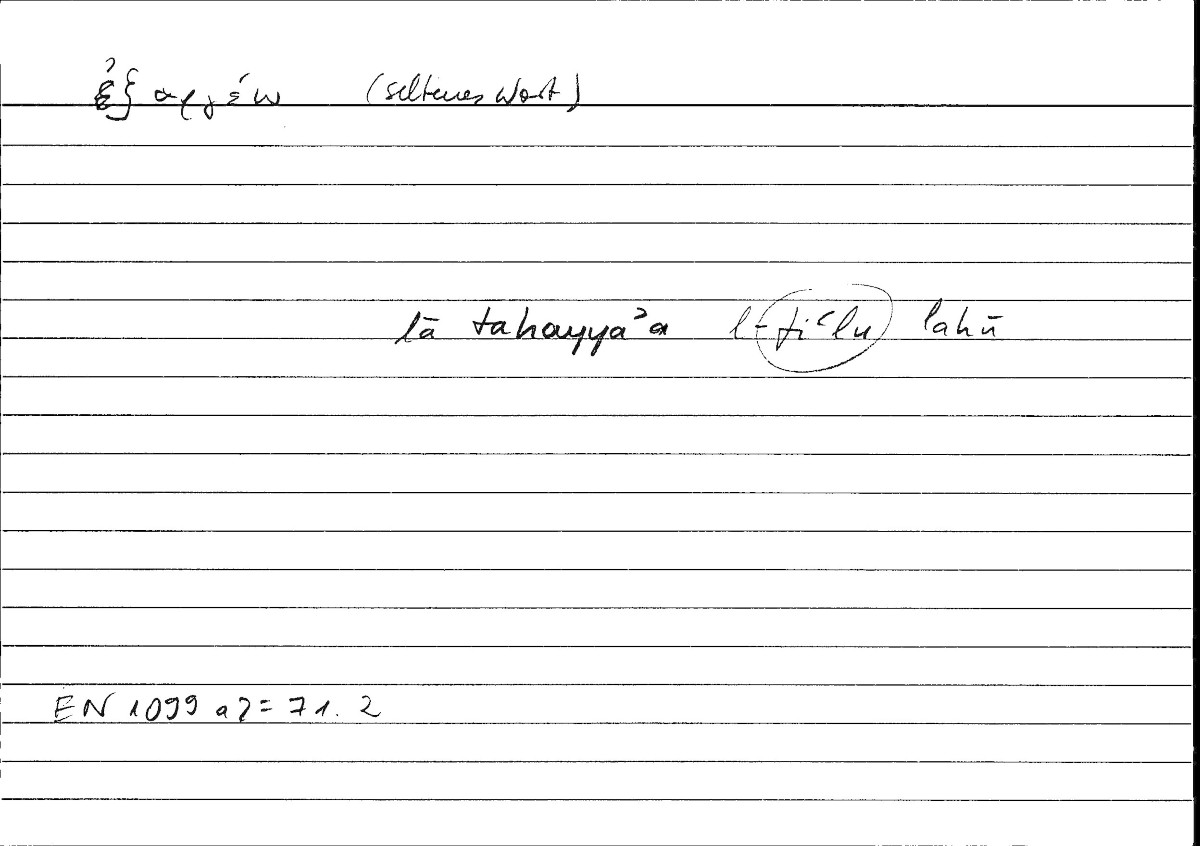 ἐξαργέω (seltenes Wort)
lā tahayyaʾa l-fiʿlu lahū
EN 1099 a2 = 71. 2